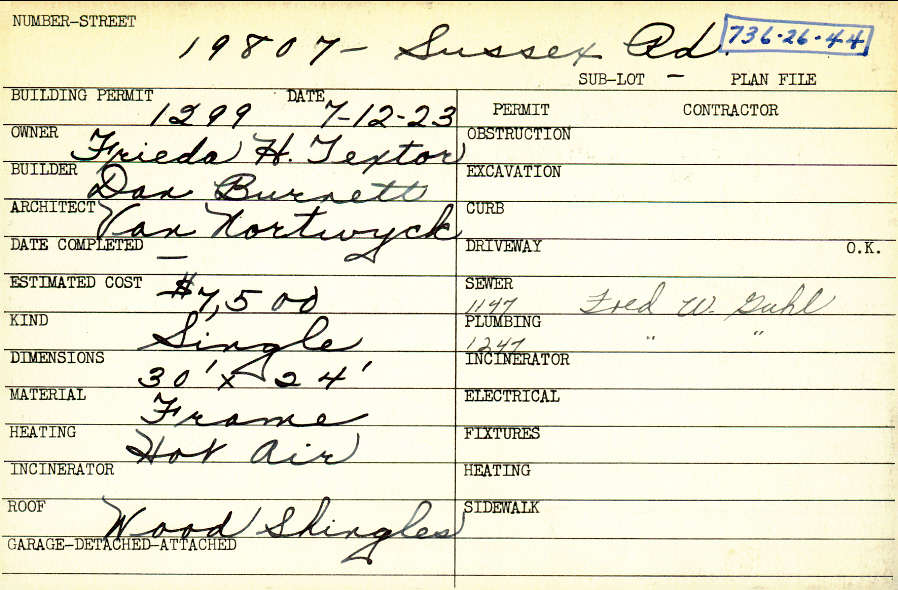 NUMBER-STREET
19807- Sussex Rd. 736-26-44
SUB-LOT - PLAN FILE
BUILDING PERMIT 1299 DATE 7-12-23
OWNER Frieda H. Textor
BUILDER Dan Burnett
ARCHITECT Van Nortwyck
DATE COMPLETED -
ESTIMATED COST $7,500
KIND Single
DIMENSIONS 30' x 24'
MATERIAL Frame
HEATING Hot Air
INCINERATOR
ROOF Wood Shingles
GARAGE-DETACHED-ATTACHED
PERMIT CONTRACTOR
OBSTRUCTION
EXCAVATION
CURB
DRIVEWAY O.K.
SEWER
1147 Fred W. Guhl
PLUMBING
1247 " "
INCINERATOR
ELECTRICAL
FIXTURES
HEATING
SIDEWALK